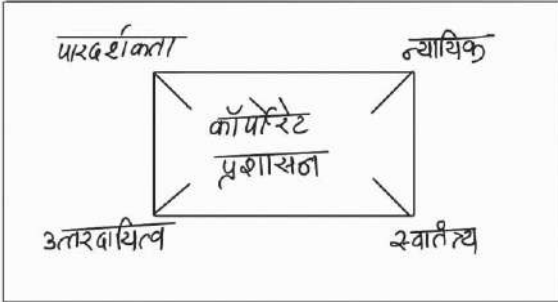 पारदर्शकता
न्यायिक
कॉर्पोरेट
प्रशासन
उत्तरदायित्व
स्वातंत्र्य